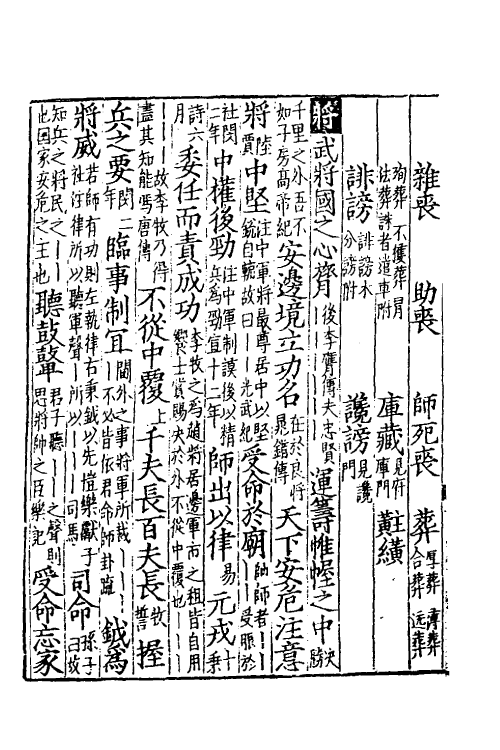 雜喪 助喪 師死喪 葬 厚葬 薄葬 合葬 远葬
殉葬 不獲葬 冒法葬 誅者遣車附 庫藏 見府庫門 黈纊
誹謗 誹謗木 分謗附 讒謗 見讒門
將 武將國之心膂 後李膺傳夫忠賢武將國之心膂 運籌帷幄之中 決勝
千里之外吾不如子房高帝紀 安邊境立功名 在於良將晁錯傳 天下安危注意
將 陸賈 中堅 注中軍將最尊居中以堅銳自輔故曰中堅光武紀 受命於廟 帥師者受命於廟受脤於
社閔二年 中權後勁 注中軍制謀後以精兵為勁宣十二年 師出以律 易 元戎 元戎十乘
詩六月 委任而責成功 李牧之為趙將居邊軍市之租皆自用饗士賞賜決於外不從中覆也
故李牧乃得盡其知能馮唐傳 不從中覆 上 千夫長百夫長 牧誓 握
兵之要 閔二年 臨事制宜 閫外之事將軍所裁不必皆依君命師卦疏 鉞為
將威 若師有功則左執律右秉鉞以先愷樂獻于社注律所以聽軍聲鉞所以為將威司馬 司命 孫子曰故
知兵之將民之司命也國家安危之主也 聽鼓鼙 君子聽鼓鼙之聲則思將帥之臣樂記 受命忘家